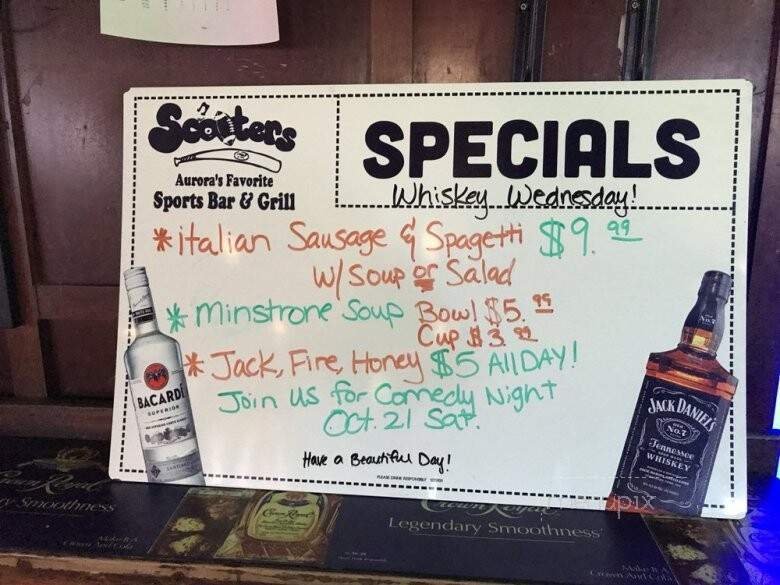 Scooters
Aurora's Favorite
Sports Bar & Grill
SPECIALS
Whiskey Wednesday!
* italian Sausage & Spagetti $9.99
w/ Soup or Salad
* Minstrone Soup Bowl $5.99
Cup $3.99
* Jack, Fire, Honey $5 All DAY!
Join us for Comedy Night
Oct. 21 Sat.
Have a Beautiful Day!
PLEASE DRINK RESPONSIBLY
BACARDI
SUPERIOR
JACK DANIEL'S
OLD
No. 7
Tennessee
WHISKEY
Crown Royal
Smoothness
Make It A
Crown And Cola
Crown Royal
Legendary Smoothness
Make It A
Crown And Cola